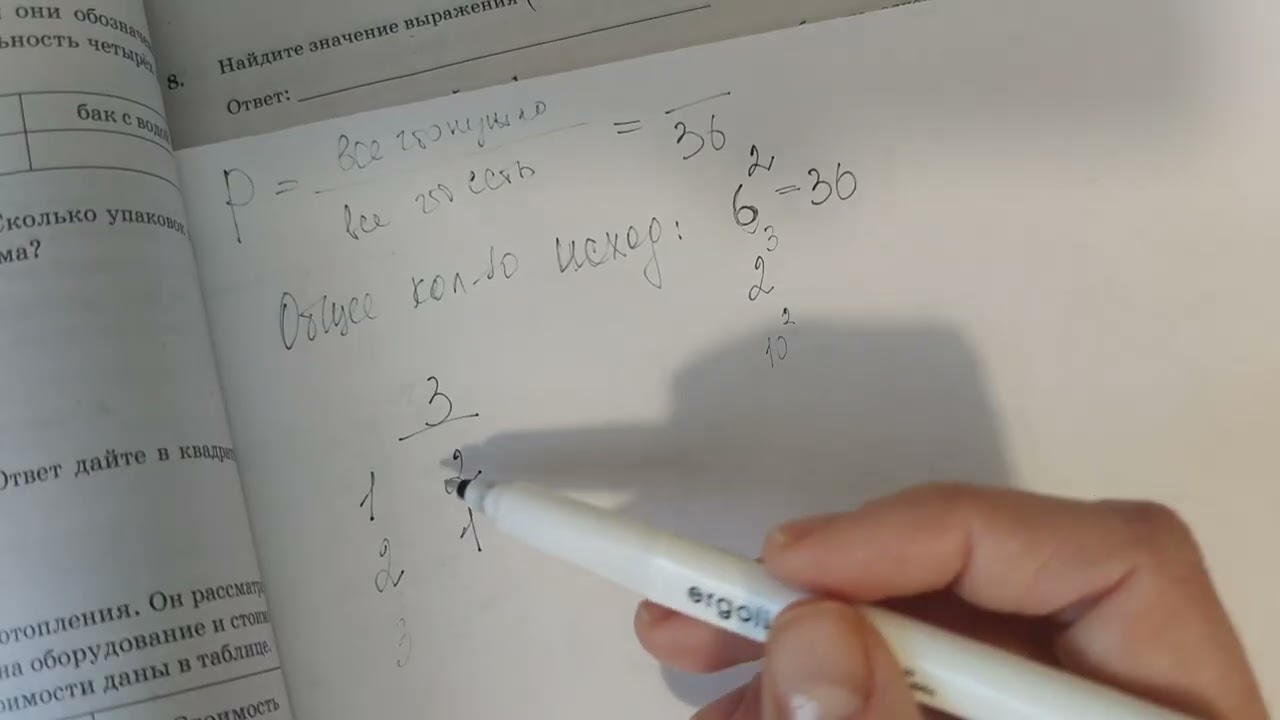 они обознач
ьность четырёх
бак с водой
Сколько упаковок
ма?
Ответ дайте в квадрат
отопления. Он рассматр
на оборудование и стои
оимости даны в таблице.
Стоимость
8. Найдите значение выражения (
Ответ:
P = все что нужно / все что есть = /36
6² = 36
Общее кол-во исход:
2³
10²
3
1 2
2 1
3
ergo